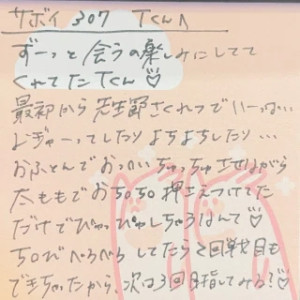 サボイ 307 Tくんへ
ずーっと会うの楽しみにしてて
くれてたTくん♡
最初から先生節さくれつでいーっぱい
よぎゃーってしたりよちよちしたり…
おふとんでおっぱいちゅっちゅさせながら
太ももでおち○ち○押さえつけてた
だけでぴゅっぴゅしちゃうなんて♡
ち○びぺろぺろしてたら2回戦目も
できちゃったから、次は3回目指してみる?♡